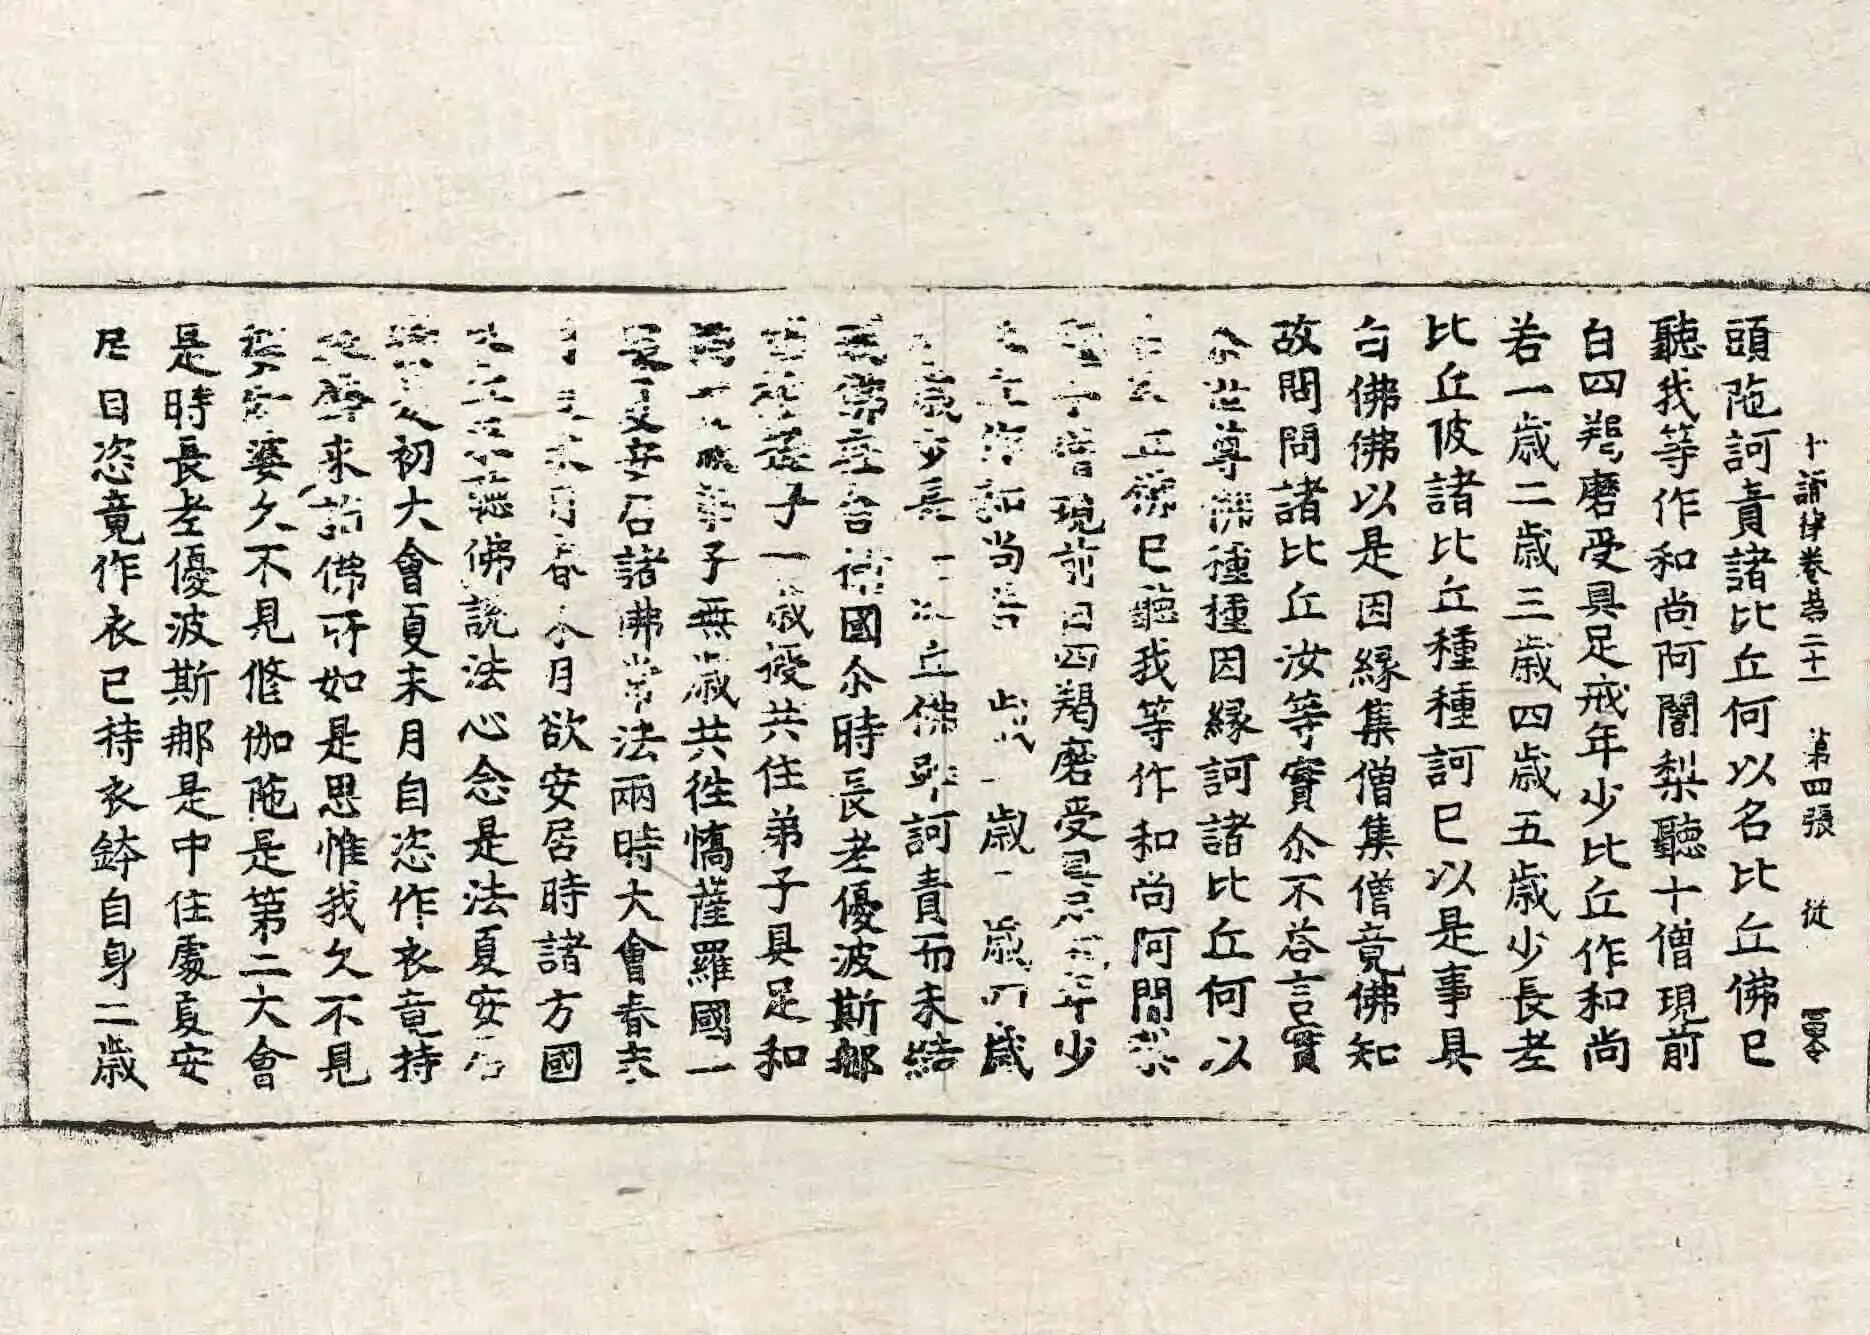 十誦律卷第二十一 第四張 從
頭陁訶責諸比丘何以名比丘佛已
聽我等作和尚阿闍梨聽十僧現前
白四羯磨受具足戒年少比丘作和尚
若一歲二歲三歲四歲五歲少長老
比丘彼諸比丘種種訶已以是事具
白佛佛以是因緣集僧集僧竟佛知
故問問諸比丘汝等實尒不荅言實
尒世尊佛種種因緣訶諸比丘何以
丘佛已聽我等作和尚阿闍梨
現前白四羯磨受年少
丘作和尚若一歲二歲四歲
歲少長丘佛雖訶責而未結
佛在舍衛國尒時長老優波斯那
子一歲授共住弟子具足和
弟子無歲共往憍薩羅國一
夏安居諸佛常法兩時大會春末
月春末月欲安居時諸方國
丘來聽佛說法心念是法夏安居
初大會夏末月自恣作衣竟持
來詣佛所如是思惟我久不見
婆久不見脩伽陁是第二大會
是時長老優波斯那是中住處夏安
居自恣竟作衣已持衣鉢自身二歲